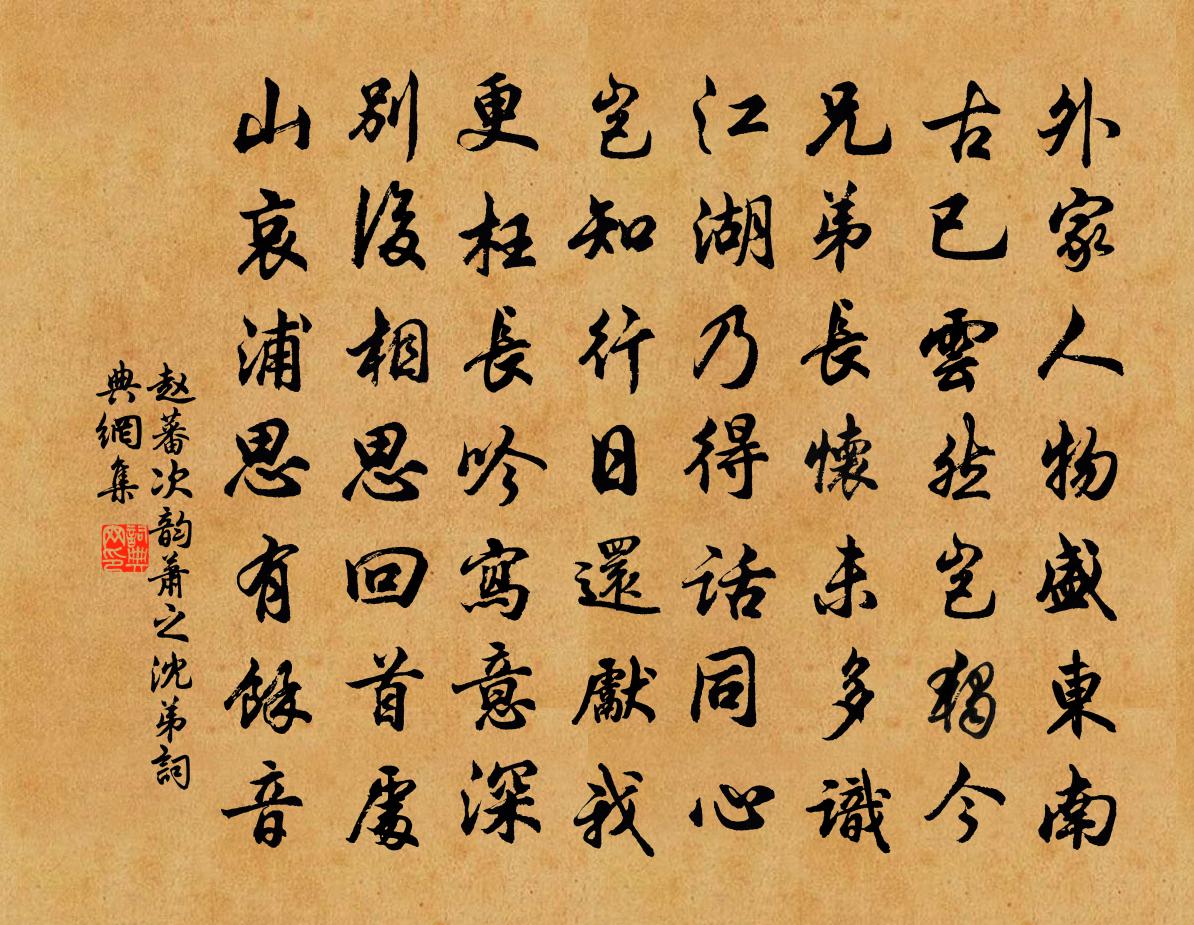 外家人物盛東南
古已雲然豈獨今
兄弟長懷未多識
江湖乃得話同心
豈知行日還獻我
更枉長吟寫意深
別後相思回首處
山哀浦思有餘音
赵蕃次韵萧之沈弟詞
典網集
詞典
网印